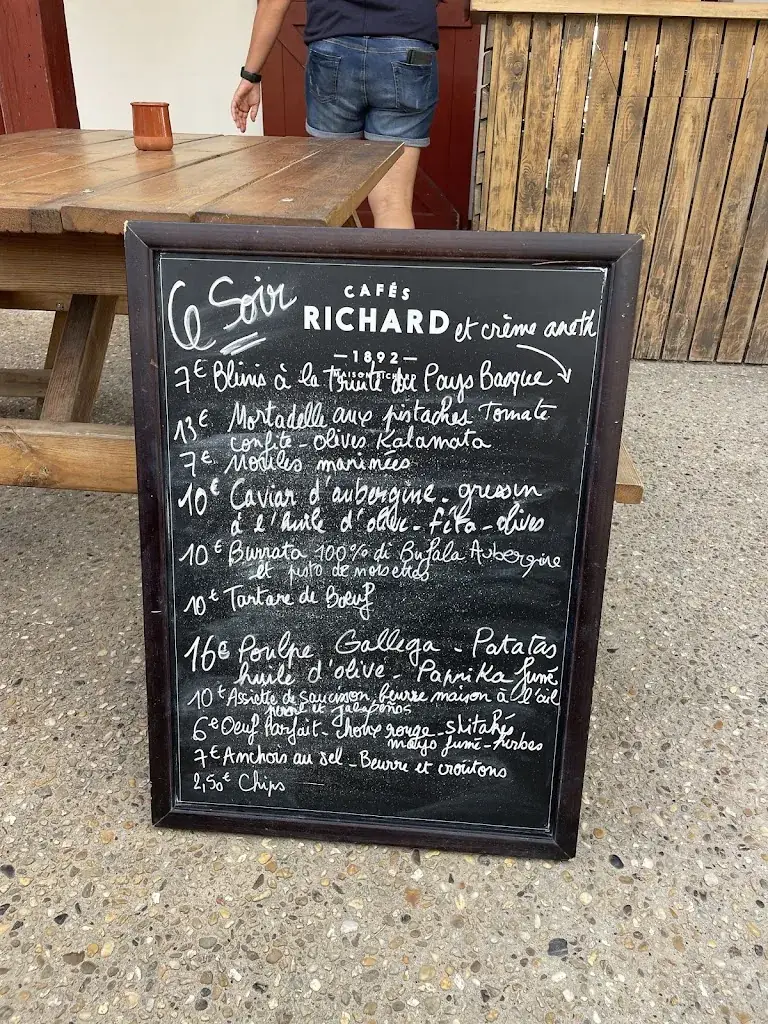 Ce Soir
CAFÉS
RICHARD
et crème aneth
—1892—
7€ Blinis à la Truite du Pays Basque
13€ Mortadelle aux pistaches Tomate
confite - olives Kalamata
7€ Moules marinées
10€ Caviar d'aubergine - gressin
à l'huile d'olive - féta - olives
10€ Burrata 100% di Bufala Aubergine
et pesto de noisettes
10€ Tartare de Boeuf
16€ Poulpe Gallega - Patatas
huile d'olive - Paprika fumé
10€ Assiette de saucisson, beurre maison à l'ail
et jalapeños
6€ Oeuf Parfait - choux rouge - shitakés
mayo fumé - herbes
7€ Anchois au sel - Beurre et croutons
2,50€ Chips